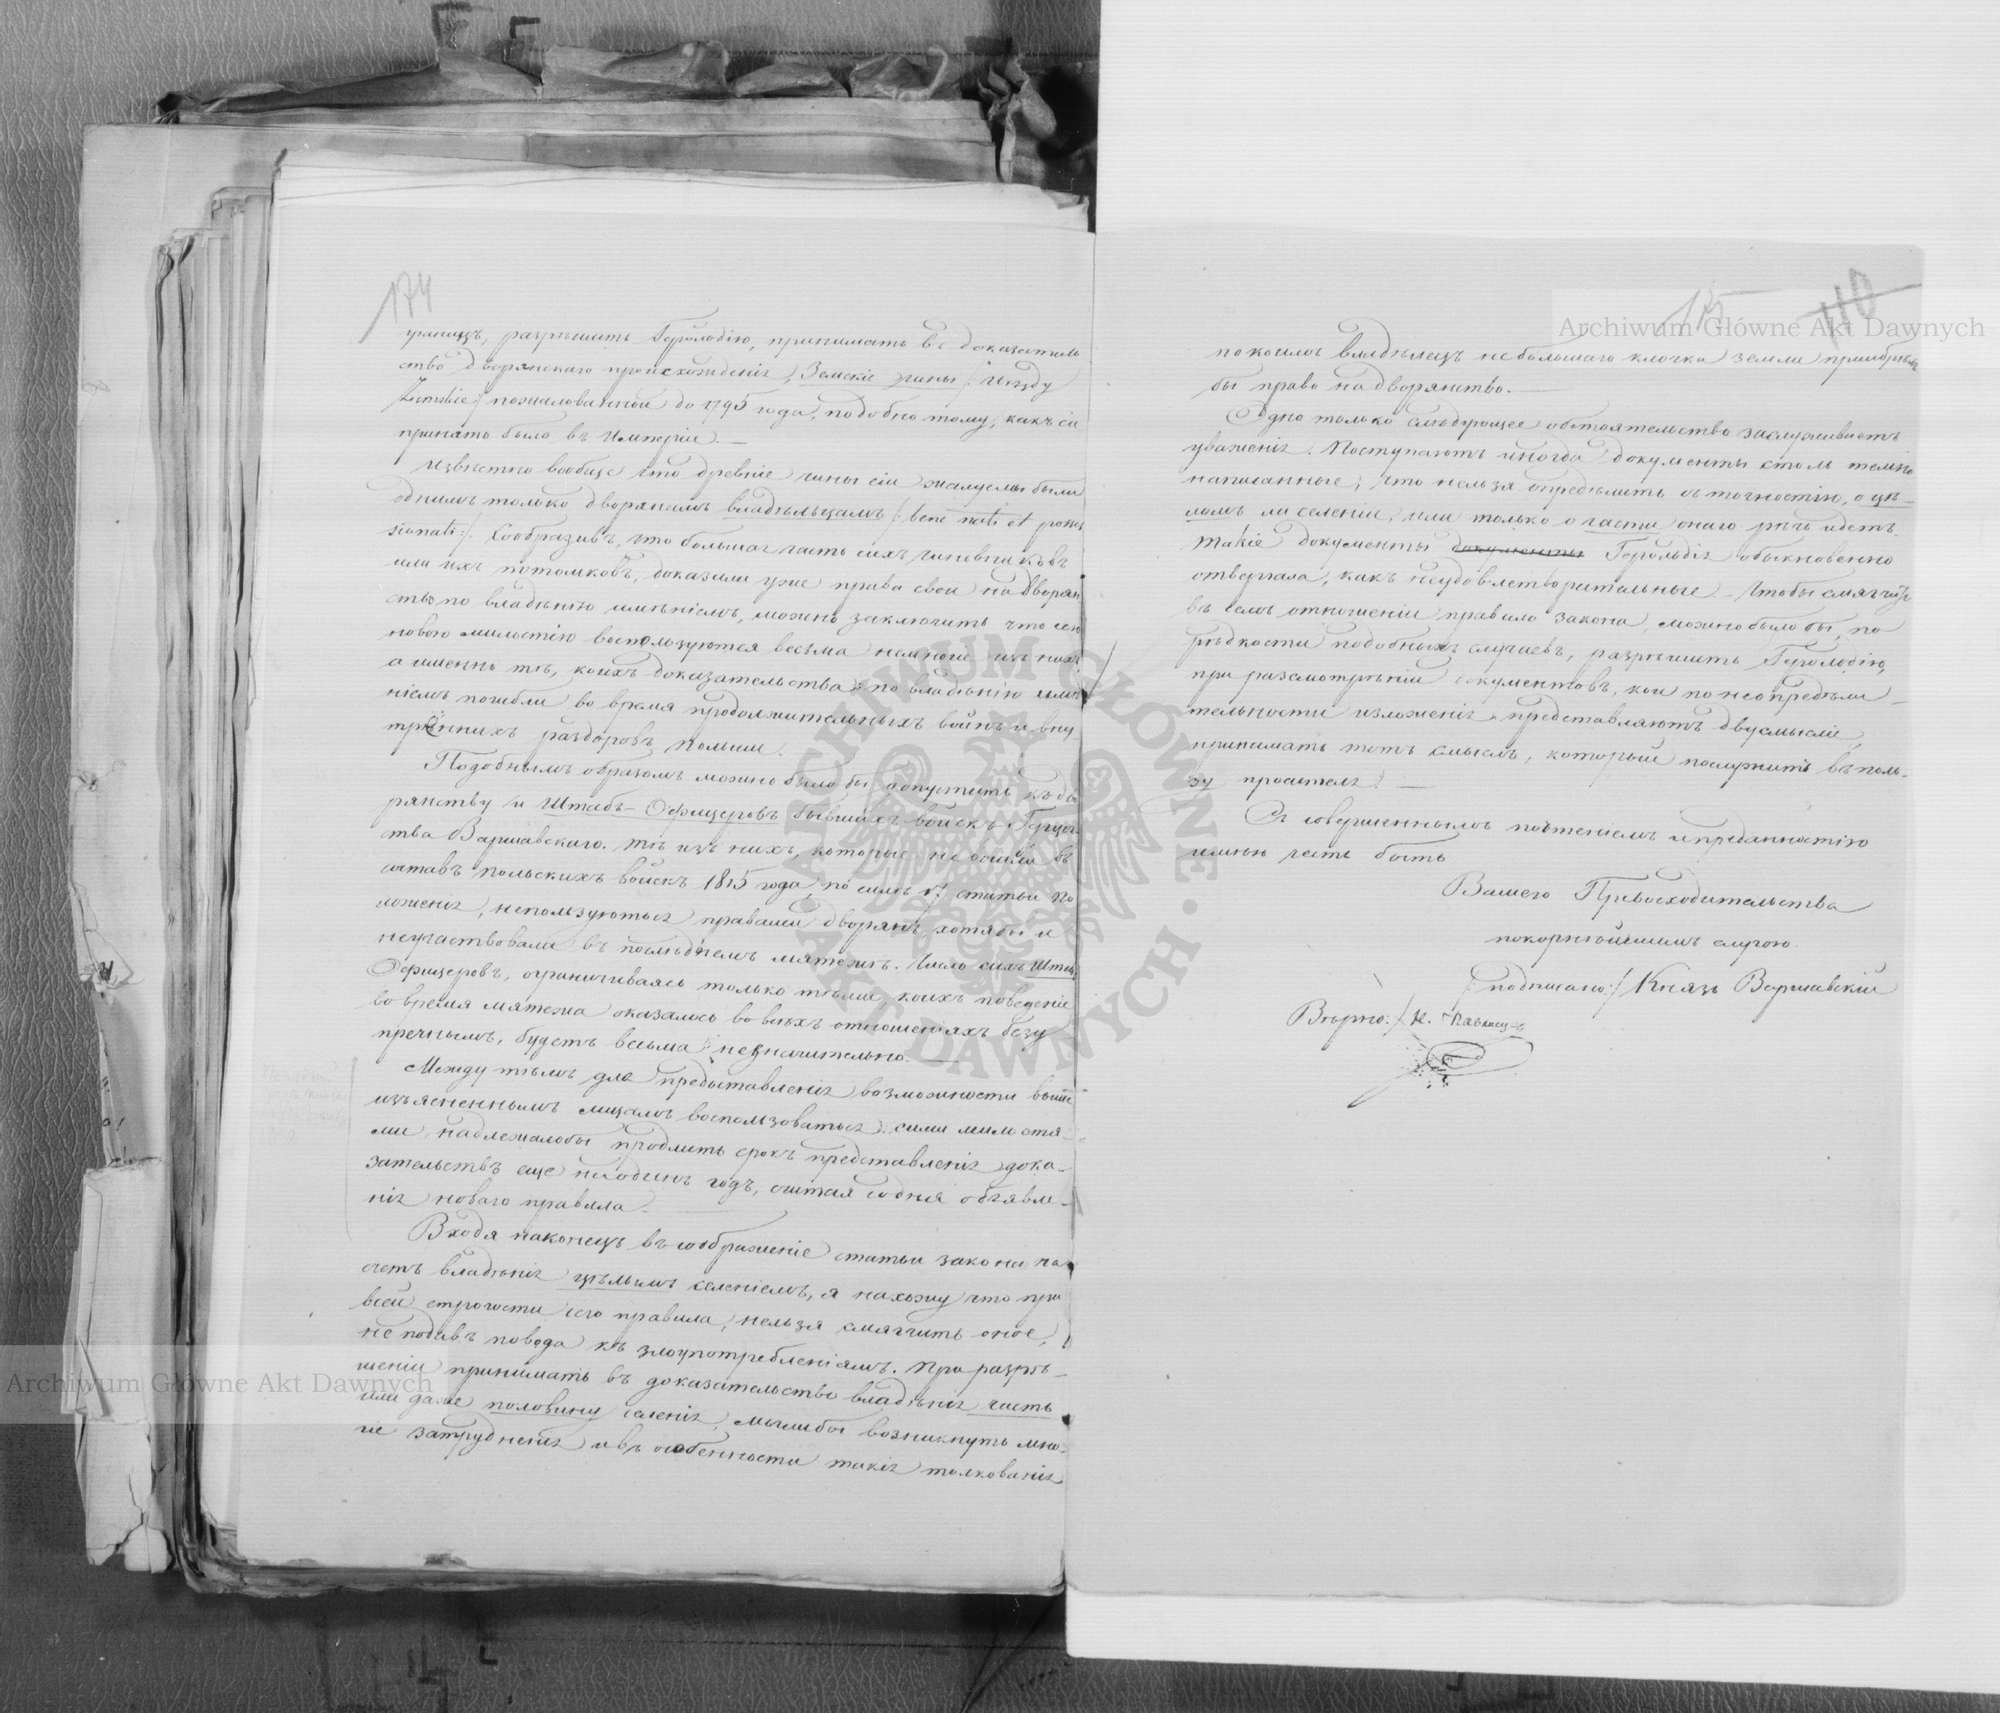 174
границъ, разрѣшить Герольдію, принимать въ доказатель
ство дворянскаго происхожденія, Земскіе чины /: Urzędy
Ziemskie :/ пожалованные до 1795 года, подобно тому, какъ сіе
принято было въ Имперіи. —
Извѣстно вообще что древніе чины сіи жалуемы были
однимъ только дворянамъ владѣльцамъ /: bene nati et posses
sionati :/. Сообразивъ, что большая часть сихъ чиновниковъ
или ихъ потомковъ, доказали уже права свои на дворян
ство по владѣнію имѣніемъ, можно заключить что сею
новою милостію воспользуются весьма немногіе изъ нихъ
а именно тѣ, коихъ доказательства по владѣнію имѣ
ніемъ погибли во время продолжительныхъ войнъ и вну
треннихъ раздоровъ Польши.
Подобнымъ образомъ можно было бы допустить къ дво
рянству и Штабъ-Офицеровъ бывшихъ войскъ Герцог
ства Варшавскаго. Тѣ изъ нихъ, которые не вошли въ
составъ польскихъ войскъ 1815 года, по силѣ статьи По
ложенія, непользуются правами дворянъ, хотя бы и
неучаствовали въ послѣднемъ мятежѣ. Число сихъ Штабъ
Офицеровъ, ограничиваясь только тѣми, коихъ поведеніе
во время мятежа оказалось во всѣхъ отношеніяхъ безу
пречнымъ, будетъ весьма незначительно. —
Между тѣмъ для предоставленія возможности выше
изъясненнымъ лицамъ воспользоваться сими милостя-
ми, надлежалобы продлить срокъ представленія дока-
зательствъ еще на одинъ годъ, считая со дня объявле-
нія новаго правила.
Входя наконецъ въ соображеніе статьи закона на
счетъ владѣнія цѣлымъ селеніемъ, я нахожу что при
всей строгости сего правила, нельзя смягчить оное,
не подавъ повода къ злоупотребленіямъ. При разрѣ-
шеніи принимать въ доказательство владѣнія часть
или даже половину селенія, моглибы возникнуть мно-
гіе затрудненія и въ особенности такія толкованія
175
110
по коимъ владѣлецъ небольшаго клочка земли пріобрѣлъ
бы право на дворянство. —
Одно только слѣдующее обстоятельство заслуживаетъ
уваженія. Поступаютъ иногда документы столь темно
написанные, что нельзя опредѣлить съ точностію, о цѣ-
ломъ ли селеніи, или только о части онаго рѣчь идетъ.
Такіе документы документы Герольдія обыкновенно
отвергала, какъ неудовлетворительные. Чтобы смягчить
въ семъ отношеніи правило закона, можно было бы, по
рѣдкости подобныхъ случаевъ, разрѣшить Герольдію,
при разсмотрѣніи документовъ, кои по неопредѣли-
тельности изложенія представляютъ двусмысліе,
принимать тотъ смыслъ, который послужитъ въ поль-
зу просителя. —
Съ совершеннымъ почтеніемъ и преданностію
имѣю честь быть
Вашего Превосходительства
покорнѣйшимъ слугою.
/: подписано :/ Князь Варшавскій
Вѣрно: /
Archiwum Główne Akt Dawnych
Archiwum Główne Akt Dawnych
ARCHIWUM GŁÓWNE AKT DAWNYCH